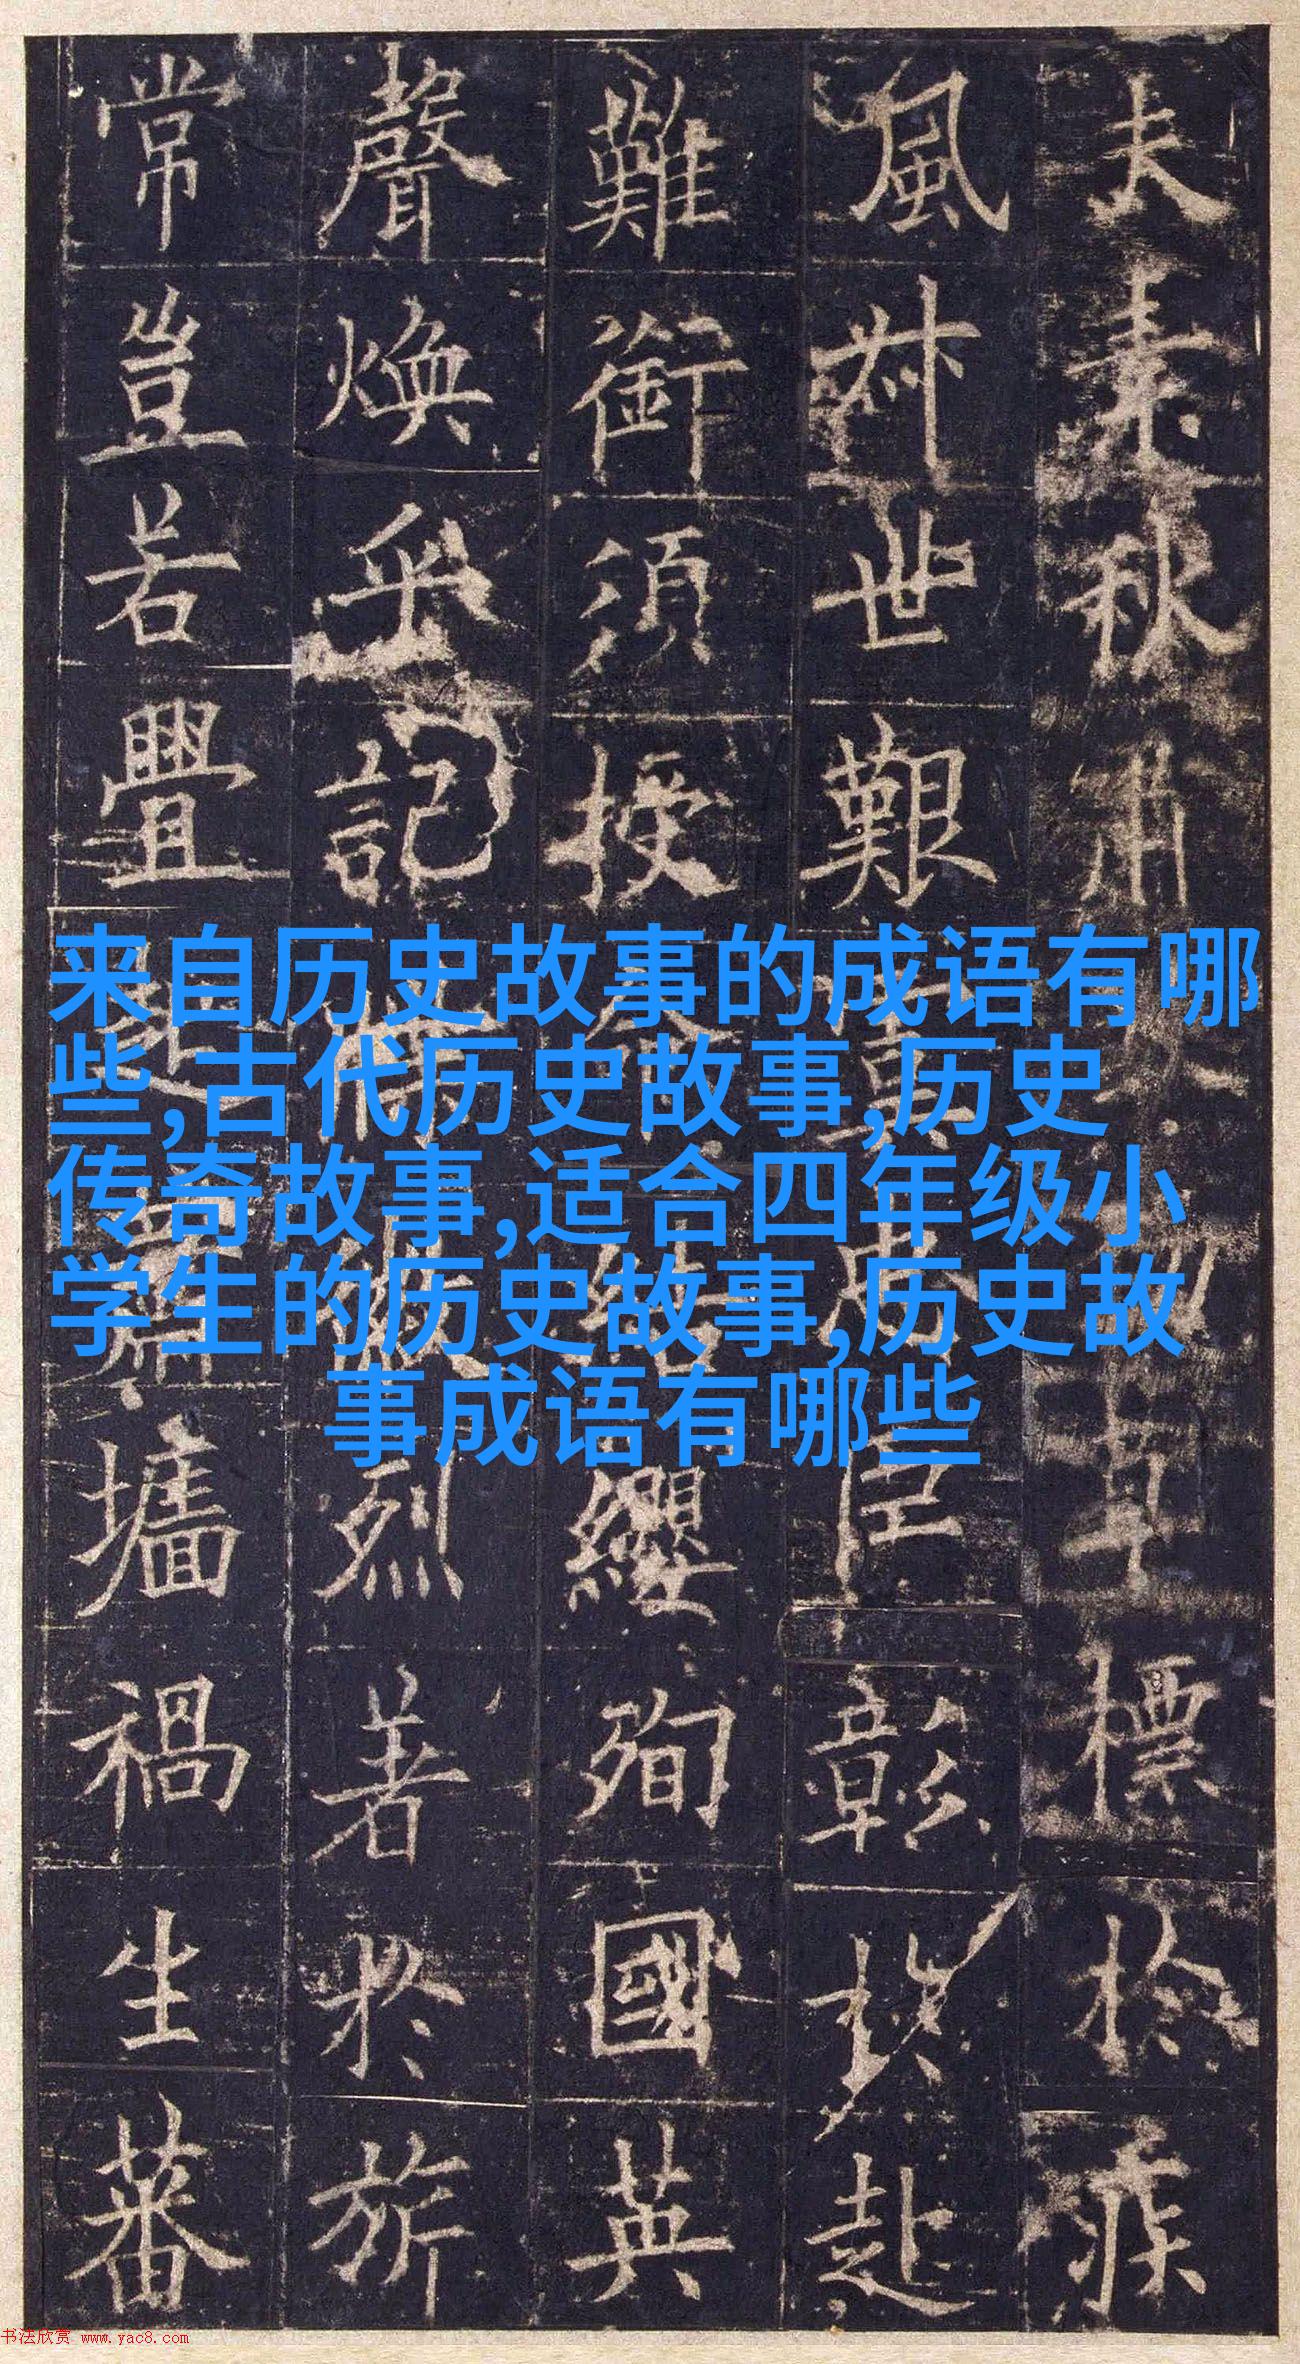 夫素秋標於疾
風叔世艱臣彰於赴
難銜須授纓殉國英
聲煥乎記烈著於旂
常豈若釁墻禍生蕃
来自历史故事的成语有哪
些,古代历史故事,历史
传奇故事,适合四年级小
学生的历史故事,历史故
事成语有哪些
书法欣赏 www.yac8.com